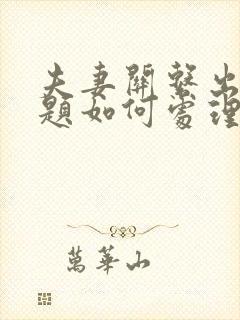 夫妻關繫出
題如何處理
萬華山